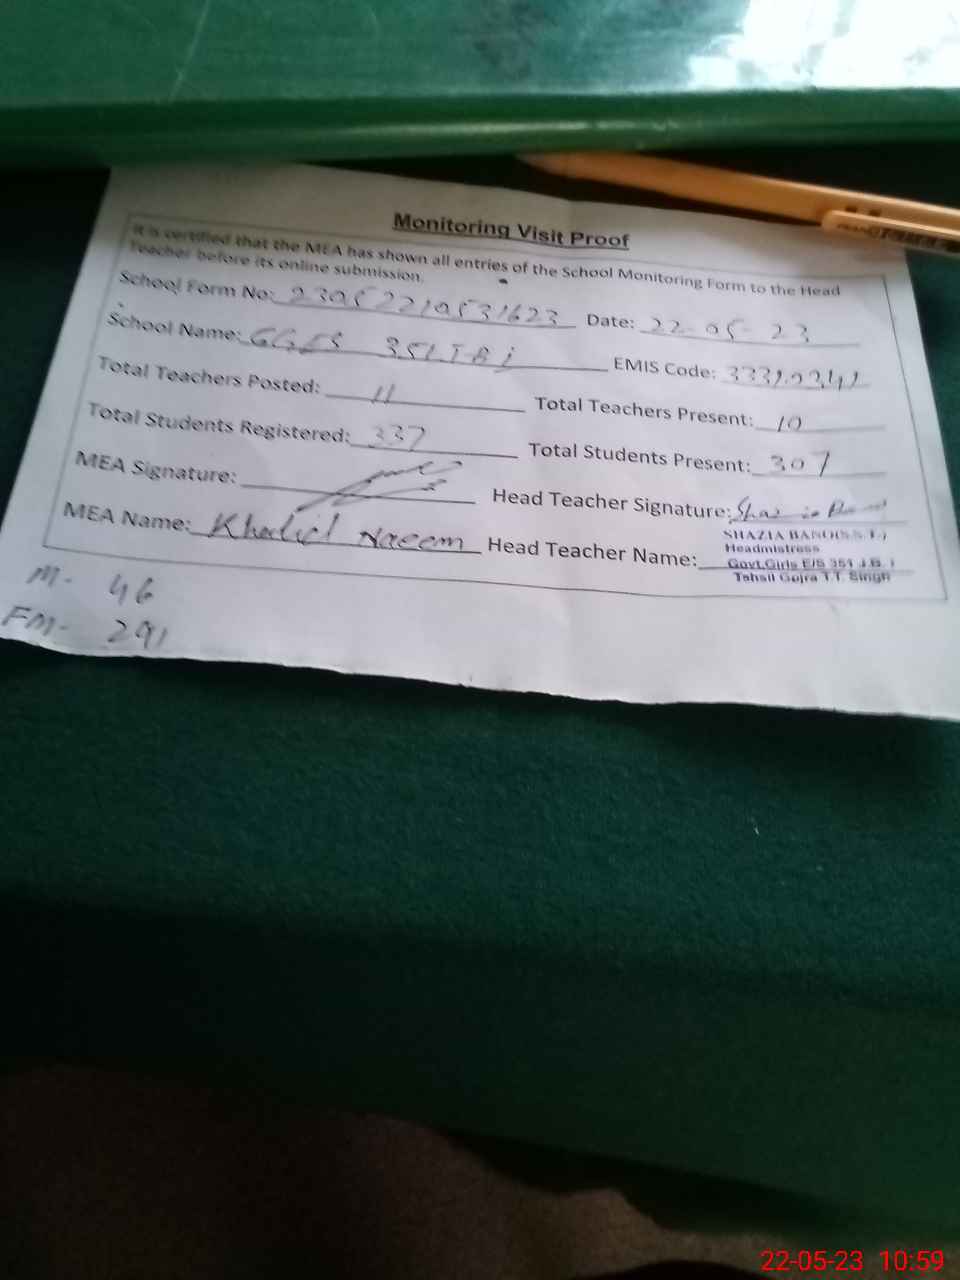 Monitoring Visit Proof
It is certified that the MEA has shown all entries of the School Monitoring Form to the Head
Teacher before its online submission.
School Form No: 230522190531623 Date: 22-05-23
School Name: GGES 351 J.B i EMIS Code:
Total Teachers Posted: 11 Total Teachers Present: 10
Total Students Registered: 337 Total Students Present: 307
MEA Signature: Head Teacher Signature:
MEA Name: Khalid Naeem Head Teacher Name:
SHAZIA BANO(S.S.T.)
Headmistress
Govt.Girls E/S 351 J.B. I
Tehsil Gojra T.T. Singh
M- 46
FM- 291
22-05-23 10:59